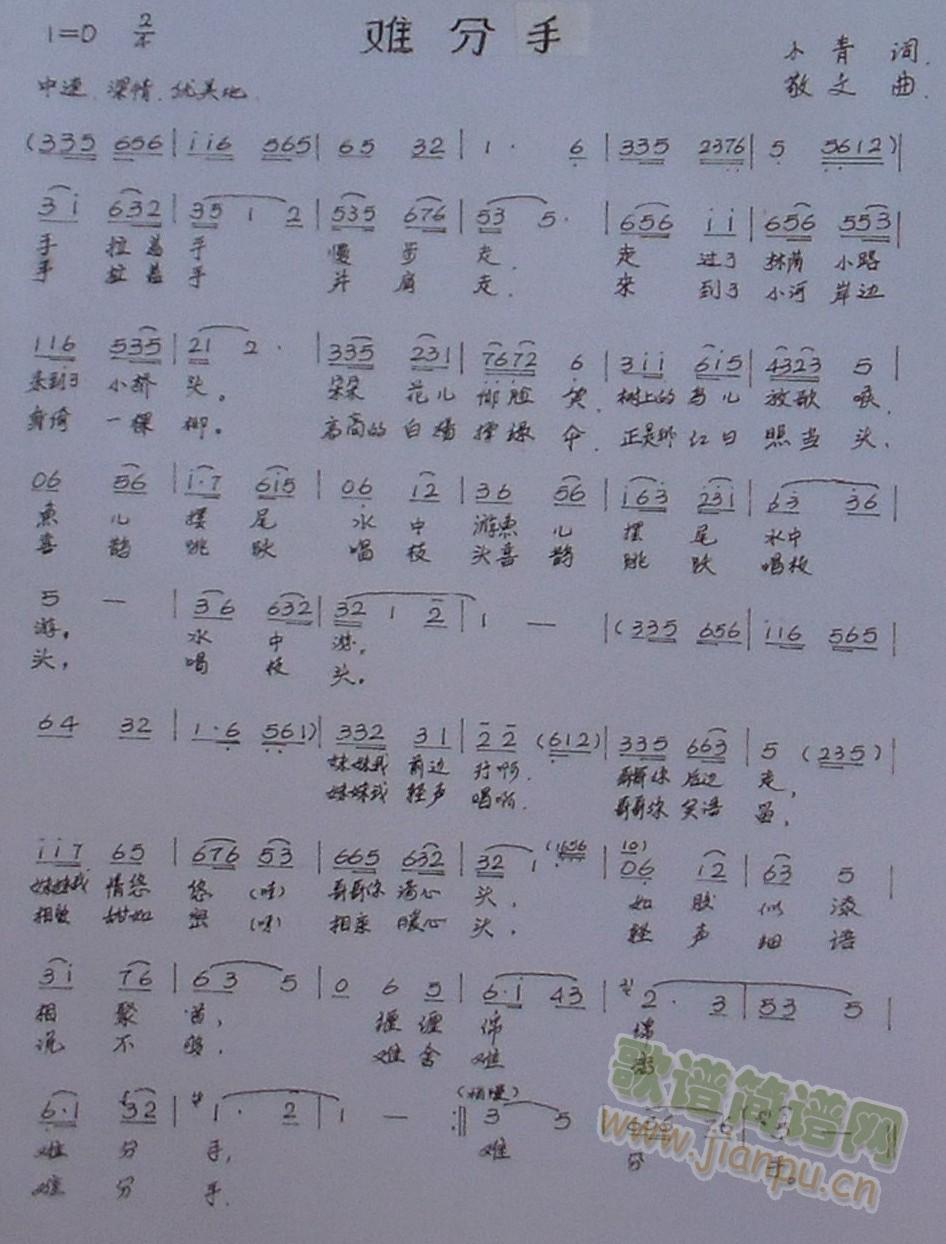 1=D 2/4
难分手
小青 词
中速 深情 优美地
敬文 曲
(335 656 | i i 6 565 | 65 32 | 1· 6 | 335 2376 | 5 5612) |
3 i 632 | 35 1 2 | 535 676 | 53 5· | 656 i i | 656 553 |
手 拉着 手 慢步 走, 走 过了 林荫 小路
手 拉着 手 并肩 走, 来 到了 小河 岸边
116 535 | 21 2· | 335 231 | 7672 6 | 3 i i 6 i 5 | 4323 5 |
来到了 小桥 头。 朵朵 花儿 脸 笑, 树上的 鸟儿 放歌 喉,
身倚 一棵 柳。 高高的 白 撑 伞, 正是 红日 照当 头,
06 56 | i·7 6 i 5 | 06 12 | 36 56 | i 63 231 | 63 36 |
鱼儿 摆尾 水中 游鱼儿 摆尾 水中
喜鹊 跳跃 唱枝 头喜鹊 跳跃 唱枝
5 — | 36 632 | 32 1 2 | 1 — | (335 656 | i i 6 565 |
游。 水中 游,
头, 唱枝 头。
64 32 | 1·6 561) | 332 31 | 2 2 (612) | 335 663 | 5 (235) |
妹妹我 前边 行啊, 哥哥你 后边 走,
妹妹我 轻声 唱啊, 哥哥你 笑语
i i 7 65 | 676 53 | 665 632 | 32 1· (1656 | 10) 06 12 | 63 5 |
妹妹我 情悠 悠(哇) 哥哥你 心 头, 如胶 似漆
相 甜如 蜜(呀) 相亲 暖心 头, 轻声 细语
3 i 76 | 63 5 | 0 6 5 | 6·i 43 | 2· 3 | 53 5 |
相聚 首, 缠缠 绵 绵
说不 够, 难舍 难
6·i 32 | 1· 2 | 1 — :‖ (稍慢) 3 5 |
难分 手, 难 分 手。
难分 手,
歌谱简谱网
www.jianpu.cn